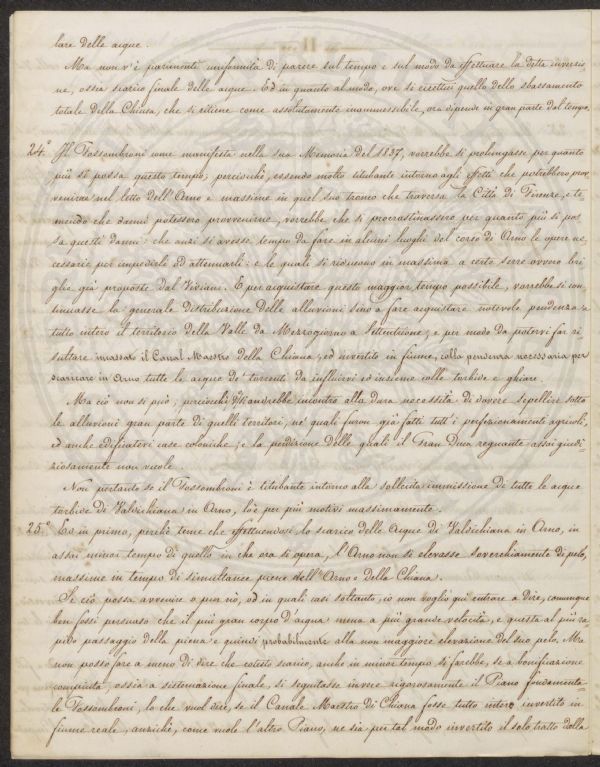 lare delle acque.
Ma non v'è parimenti uniformità di parere sul tempo e sul modo da effettuare la detta inversio-
ne, ossia scarico finale delle acque. Ed in quanto al modo, ove si eccettui quello dello sbassamento
totale della Chiusa, che si ritiene come assolutamente inammessibile, ora dipende in gran parte dal tempo.
24.° Il Fossombroni come manifesta nella sua Memoria del 1837, vorrebbe si prolungasse per quanto
più si possa questo tempo; perciocchè, essendo molto titubante intorno agli effetti che potrebbero prov-
venirne nel letto dell'Arno e massime in quel suo tronco che traversa la Città di Firenze, e te-
mendo che danni potessero provvenirne, vorrebbe che si procrastinassero per quanto più si pos
sa questi danni: che anzi si avesse tempo da fare in alcuni luoghi del corso di Arno le opere ne-
cessarie per impedirle ed attenuarli: e le quali si riducono in massima a certe serre ovvero bri
glie già proposte dal Viviani. E per acquistare questo maggior tempo possibile, vorrebbe si con-
tinuasse la generale distribuzione delle alluvioni sino a fare acquistare notevole pendenza a
tutto intero il territorio della Valle da Mezzogiorno a Settentrione, e per modo da potervi far ri-
sultare incassato il Canal Maestro della Chiana, ed invertito in fiume, colla pendenza necessaria per
scaricare in Arno tutte le acque de' torrenti da influirvi ed insieme colle torbide e ghiare.
Ma ciò non si può; perciocchè s'andrebbe incontro alla dura necessità di dovere sepellire sotto
le alluvioni gran parte di quelli territori, ne' quali furon già fatti tutt'i perfezionamenti agricoli,
ed anche edificatevi case coloniche; e la perdizione delle quali il Gran Duca regnante assai giudi-
ziosamente non vuole.
Non pertanto se il Fossombroni è titubante intorno alla sollecita immissione di tutte le acque
torbide di Valdichiana in Arno, lo è per più motivi massimamente.
25.° Ed in primo, perchè teme che effettuendosi lo scarico delle Acque di Valdichiana in Arno, in
assai minor tempo di quello in che ora si opera, l'Arno non si elevasse soverchiamente di pelo,
massime in tempo di simultanee piene dell'Arno e della Chiana.
Se ciò possa avvenire o pur nò, ed in quali casi soltanto, io non voglio qui entrare a dire, comunque
ben fossi persuaso che il più gran corpo d'acqua mena a più grande velocità, e questa al più ra-
pido passaggio della piena e quindi probabilmente alla non maggiore elevazione del suo pelo. Ma
non posso fare a meno di dire che cotesto scarico, anche in minor tempo si farebbe, se a bonificazione
compiuta, ossia a sistemazione finale, si seguitasse invece rigorosamente il Piano fondamenta-
le Fossombroni, lo che vuol dire, se il Canale Maestro di Chiana fosse tutto intero invertito in
fiume reale, anzichè, come vuole l'altro Piano, ne sia per tal modo invertito il solo tratto dalla